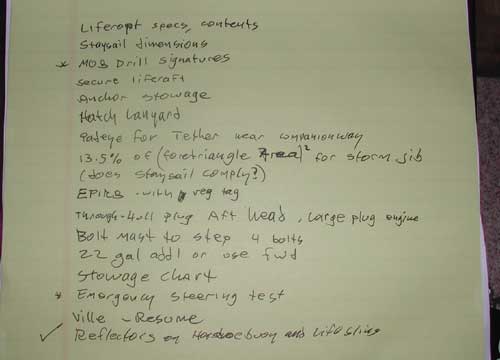 Liferapt specs, contents
Staysail dimensions
* MOB Drill signatures
secure liferaft
Anchor stowage
Hatch Lanyard
Padeye for Tether near companionway
13.5% of (foretriangle Area)² for storm jib
(does staysail comply?)
EPIRB - with reg tag
Through-Hull plug Aft head, large plug engine
Bolt Mast to step 4 bolts
22 gal addl or use fwd
Stowage Chart
* Emergency steering test
Ville - Resume
✓ Reflectors on Horseshoebuoy and Lifesling